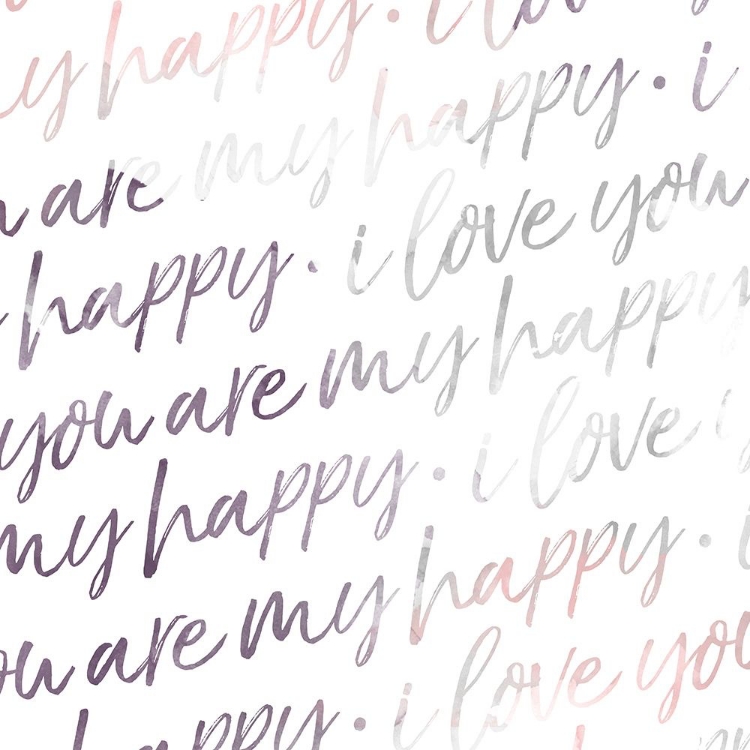 my happy. i
are my happy. i
happy. i love you
you are my happy
my happy. i love
you are my happy. i
happy. i love you